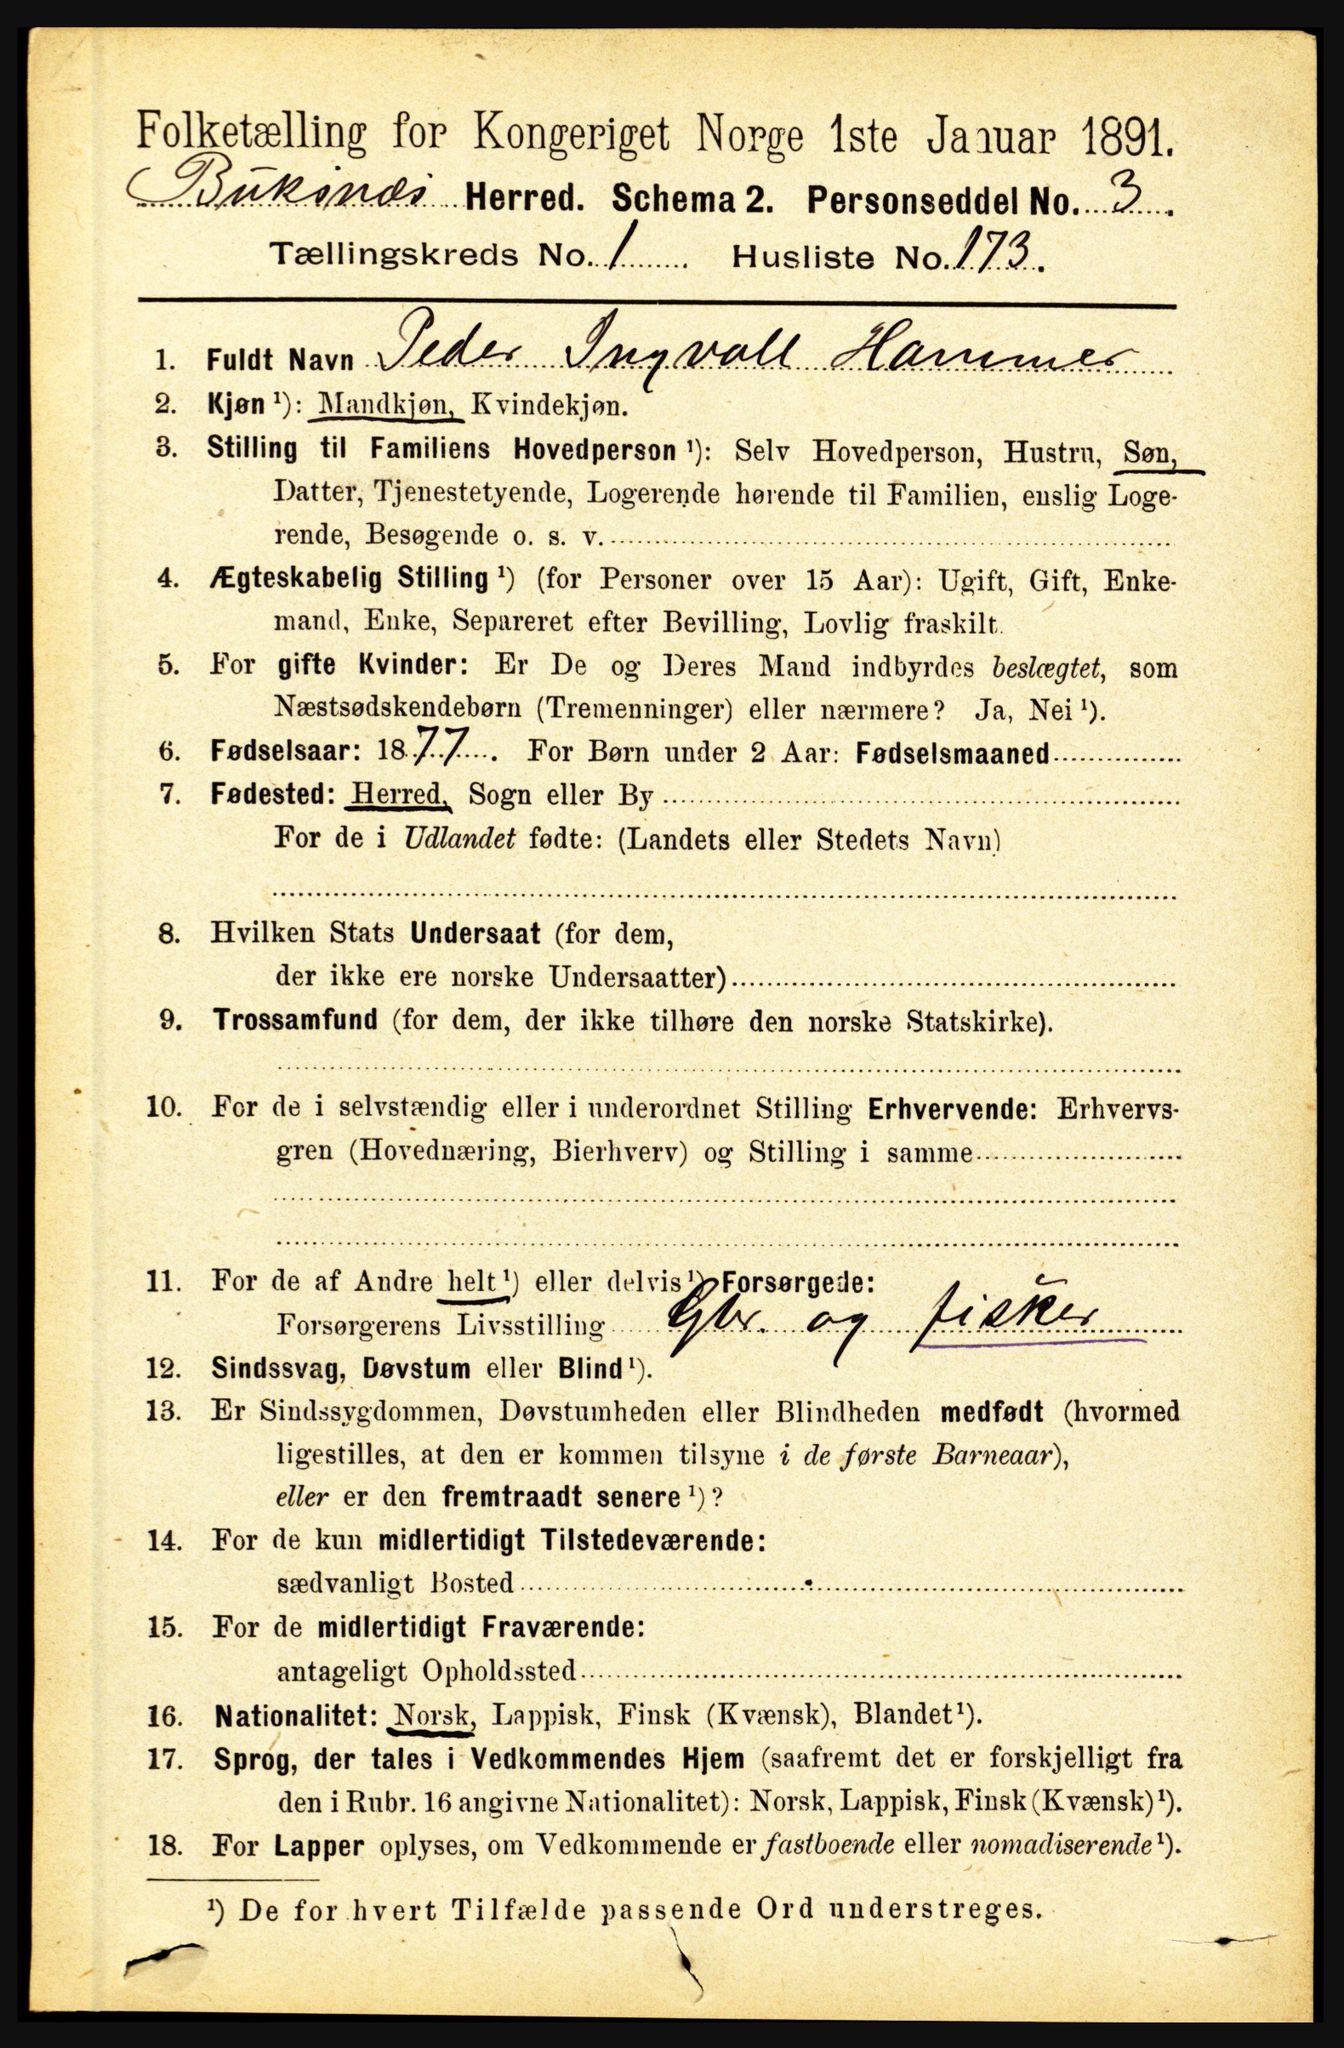 Folketælling for Kongeriget Norge 1ste Januar 1891.
Buksnæs Herred. Schema 2. Personseddel No. 3.
Tællingskreds No. 1 Husliste No. 173.
1. Fuldt Navn Peder Ingvall Hammer
2. Kjøn ¹): Mandkjøn, Kvindekjøn.
3. Stilling til Familiens Hovedperson ¹): Selv Hovedperson, Hustru, Søn,
Datter, Tjenestetyende, Logerende hørende til Familien, enslig Loge-
rende, Besøgende o. s. v.
4. Ægteskabelig Stilling ¹) (for Personer over 15 Aar): Ugift, Gift, Enke-
mand, Enke, Separeret efter Bevilling, Lovlig fraskilt.
5. For gifte Kvinder: Er De og Deres Mand indbyrdes beslægtet, som
Næstsødskendebørn (Tremenninger) eller nærmere? Ja, Nei ¹).
6. Fødselsaar: 1877. For Børn under 2 Aar: Fødselsmaaned
7. Fødested: Herred, Sogn eller By
For de i Udlandet fødte: (Landets eller Stedets Navn)
8. Hvilken Stats Undersaat (for dem,
der ikke ere norske Undersaatter)
9. Trossamfund (for dem, der ikke tilhøre den norske Statskirke).
10. For de i selvstændig eller i underordnet Stilling Erhvervende: Erhvervs-
gren (Hovednæring, Bierhverv) og Stilling i samme
11. For de af Andre helt ¹) eller delvis ¹) Forsørgede:
Forsørgerens Livsstilling Gbr. og fisker
12. Sindssvag, Døvstum eller Blind ¹).
13. Er Sindssygdommen, Døvstumheden eller Blindheden medfødt (hvormed
ligestilles, at den er kommen tilsyne i de første Barneaar),
eller er den fremtraadt senere ¹)?
14. For de kun midlertidigt Tilstedeværende:
sædvanligt Bosted
15. For de midlertidigt Fraværende:
antageligt Opholdssted
16. Nationalitet: Norsk, Lappisk, Finsk (Kvænsk), Blandet ¹).
17. Sprog, der tales i Vedkommendes Hjem (saafremt det er forskjelligt fra
den i Rubr. 16 angivne Nationalitet): Norsk, Lappisk, Finsk (Kvænsk) ¹).
18. For Lapper oplyses, om Vedkommende er fastboende eller nomadiserende ¹).
¹) De for hvert Tilfælde passende Ord understreges.